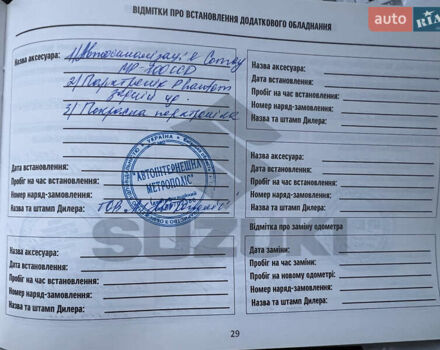 ВІДМІТКИ ПРО ВСТАНОВЛЕННЯ ДОДАТКОВОГО ОБЛАДНАННЯ
auto RIA
Назва аксесуара: 1) Автосигналізація
2) Парктронік Phantom
задній
3)
Дата встановлення:
Пробіг на час встановлення:
Номер наряд-замовлення:
Назва та штамп Дилера: ТОВ
УКРАЇНА
"АВТОІНТЕРНЕШНЛ
МЕТРОПОЛІС"
Назва аксесуара:
Дата встановлення:
Пробіг на час встановлення:
Номер наряд-замовлення:
Назва та штамп Дилера:
Назва аксесуара:
Дата встановлення:
Пробіг на час встановлення:
Номер наряд-замовлення:
Назва та штамп Дилера:
Назва аксесуара:
Дата встановлення:
Пробіг на час встановлення:
Номер наряд-замовлення:
Назва та штамп Дилера:
Відмітка про заміну одометра
Дата заміни:
Пробіг на час заміни:
Пробіг на новому одометрі:
Номер наряд-замовлення:
Назва та штамп Дилера:
SUZUKI
29